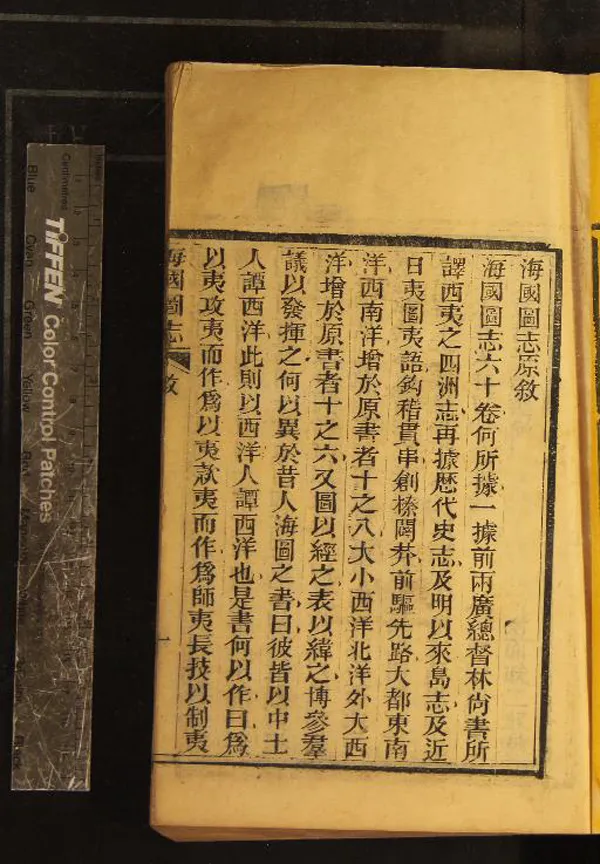 海國圖志原敘
海國圖志六十卷何所據一據前兩廣總督林尚書所
譯西夷之四洲志再據歷代史志及明以來島志及近
日夷圖夷語鈎稽貫串創榛闢莽前驅先路大都東南
洋西南洋增於原書者十之八大小西洋北洋外大西
洋增於原書者十之六又圖以經之表以緯之博參羣
議以發揮之何以異於昔人海圖之書曰彼皆以中土
人譚西洋此則以西洋人譚西洋也是書何以作曰爲
以夷攻夷而作爲以夷款夷而作爲師夷長技以制夷
海國圖志 敘 一
TIFFEN Color Control Patches
Centimetres
Blue Cyan Green Yellow Red